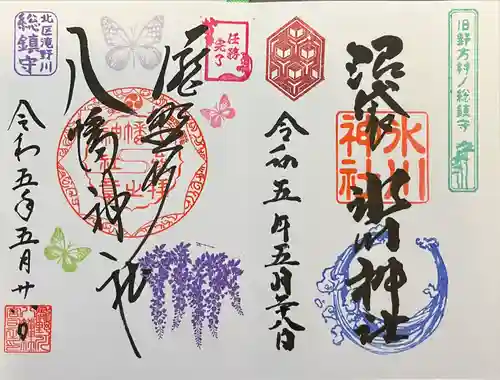 旧野方村ノ総鎮守
沼袋 氷川神社
氷川
神社
令和五年五月廿八日
任務
完了
滝野川
八幡神社
北区滝野川
総鎮守
令和五年五月廿八日